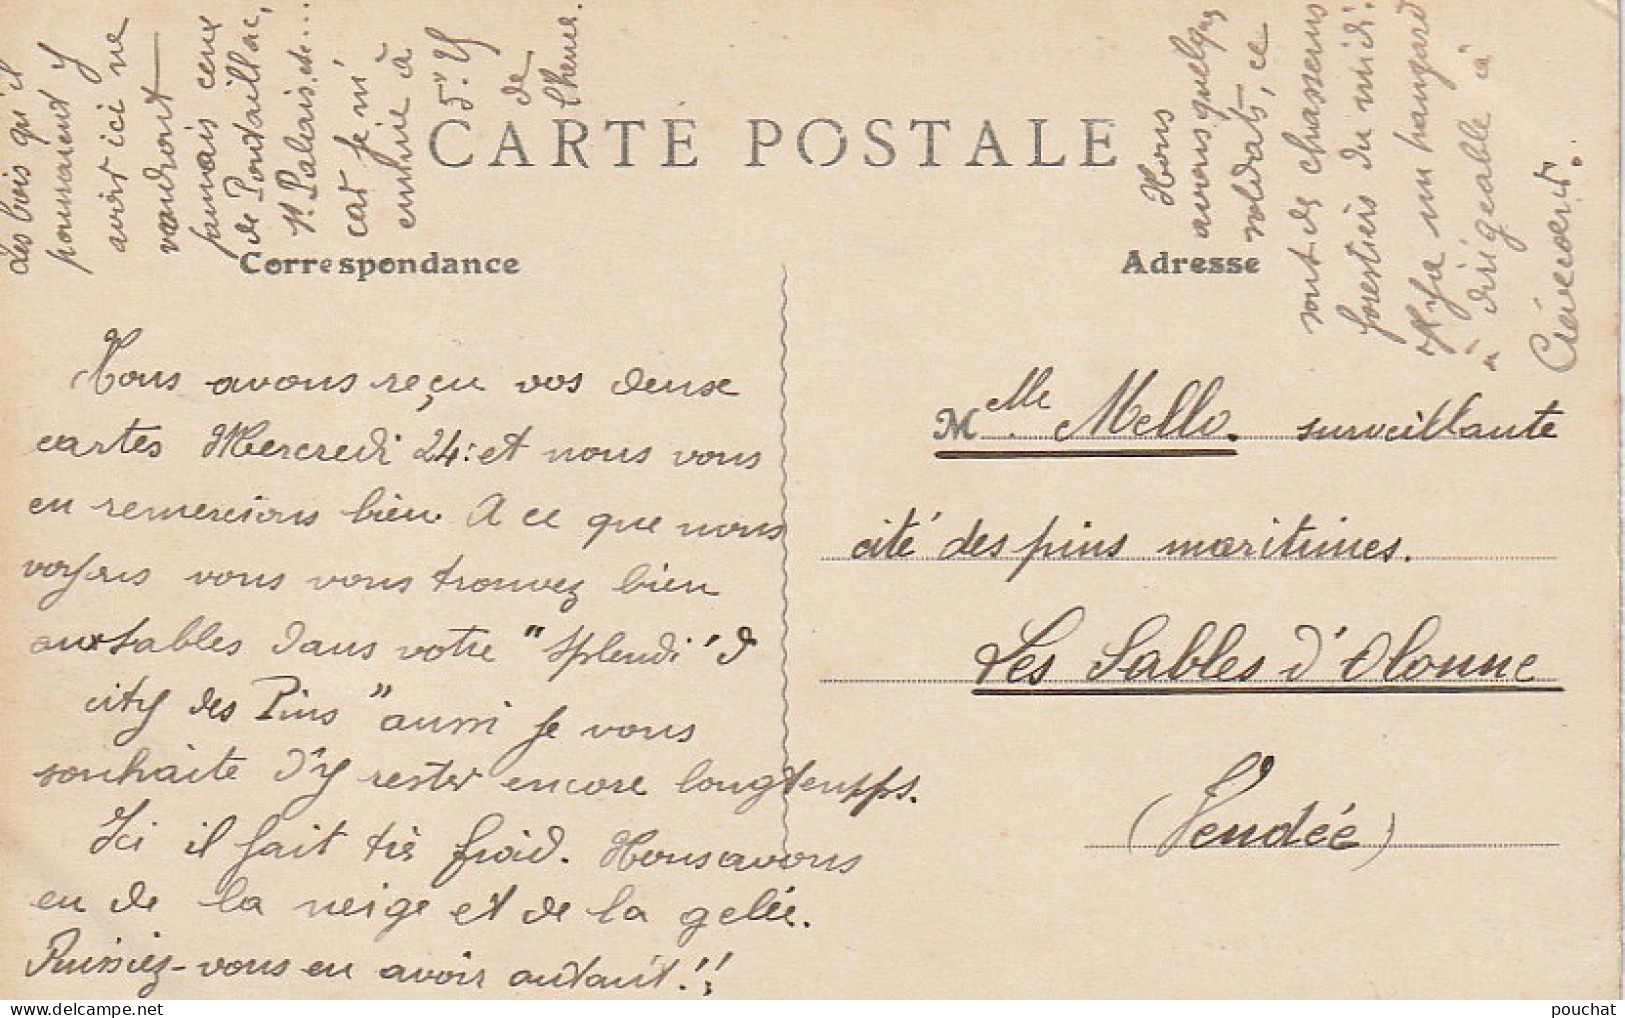 CARTE POSTALE
Correspondance
Adresse
Nous avons reçu vos deux
cartes Mercredi 24: et nous vous
en remercions bien A ce que nous
voyons vous vous trouvez bien
aux sables dans votre "Splendi'd
city des Pins" aussi je vous
souhaite d'y rester encore longtemps.
Ici il fait très froid. Nous avons
eu de la neige et de la gelée.
Puissiez-vous en avoir autant!!
Les bois qu'il
pourraient y
avoir ici ne
vaudront
jamais ceux
de Pontaillac,
St. Palais, etc...
car je m'
ennuie à
5" 25
de
l'heure.
Nous
avons quelques
soldats, ce
sont des chasseurs
forestiers du midi.
Il y a un hangard
à dirigeable à
Crèvecoeur.
Melle Mello. surveillante
cité des pins maritimes.
Les Sables d'Olonne
(Vendée)
pouchat